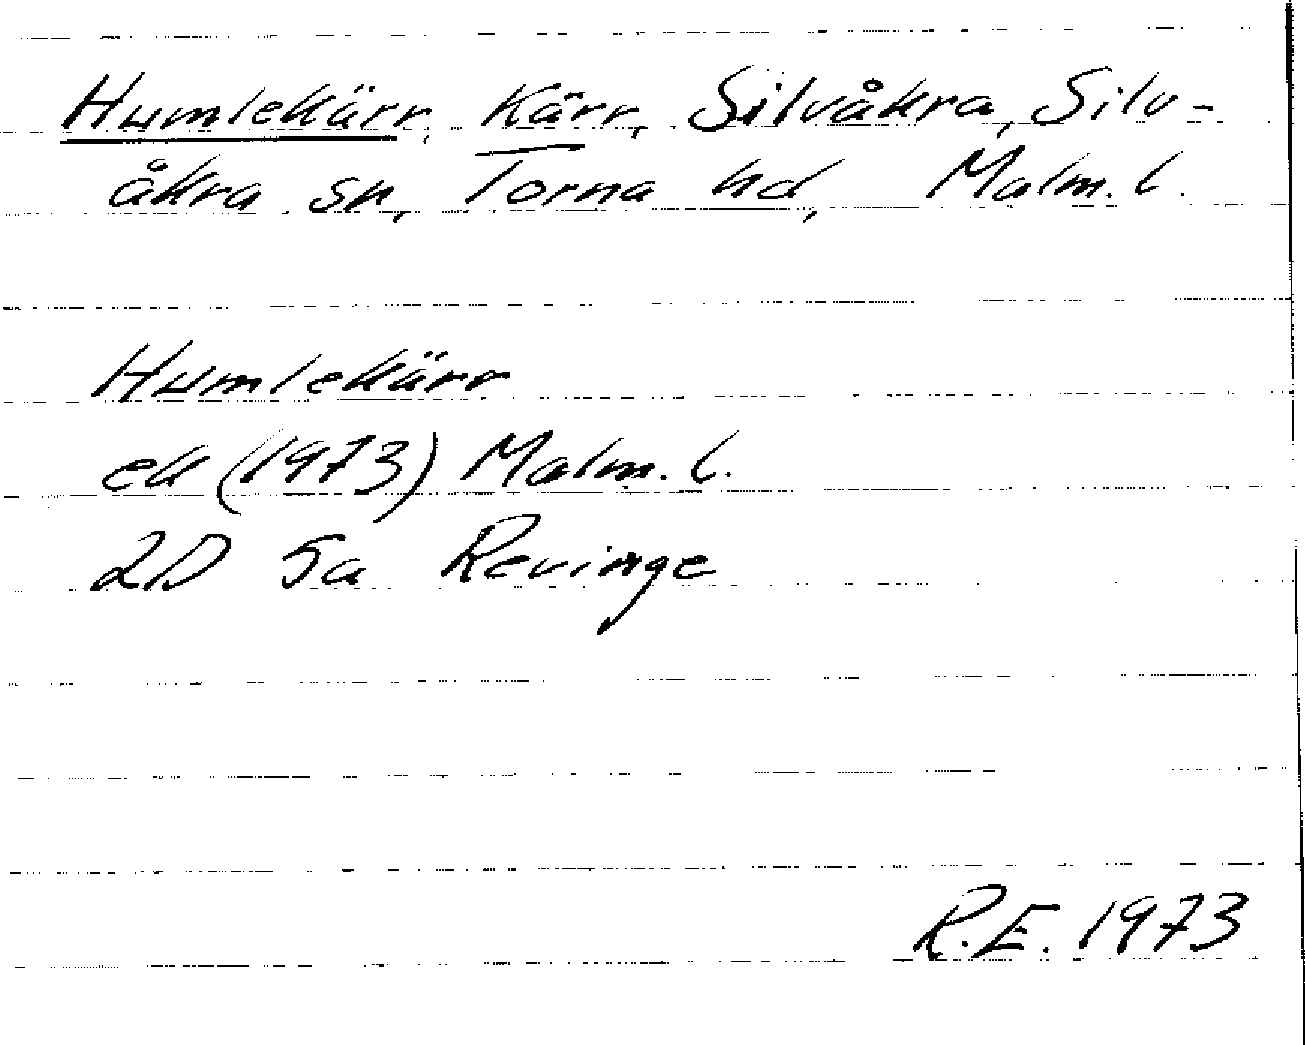 Humlekärr, Kärr, Silvåkra, Silv-
åkra sn, Torna hd, Malm. l.
Humlekärr
ek (1973) Malm. l.
2D 5a Revinge
R.E. 1973